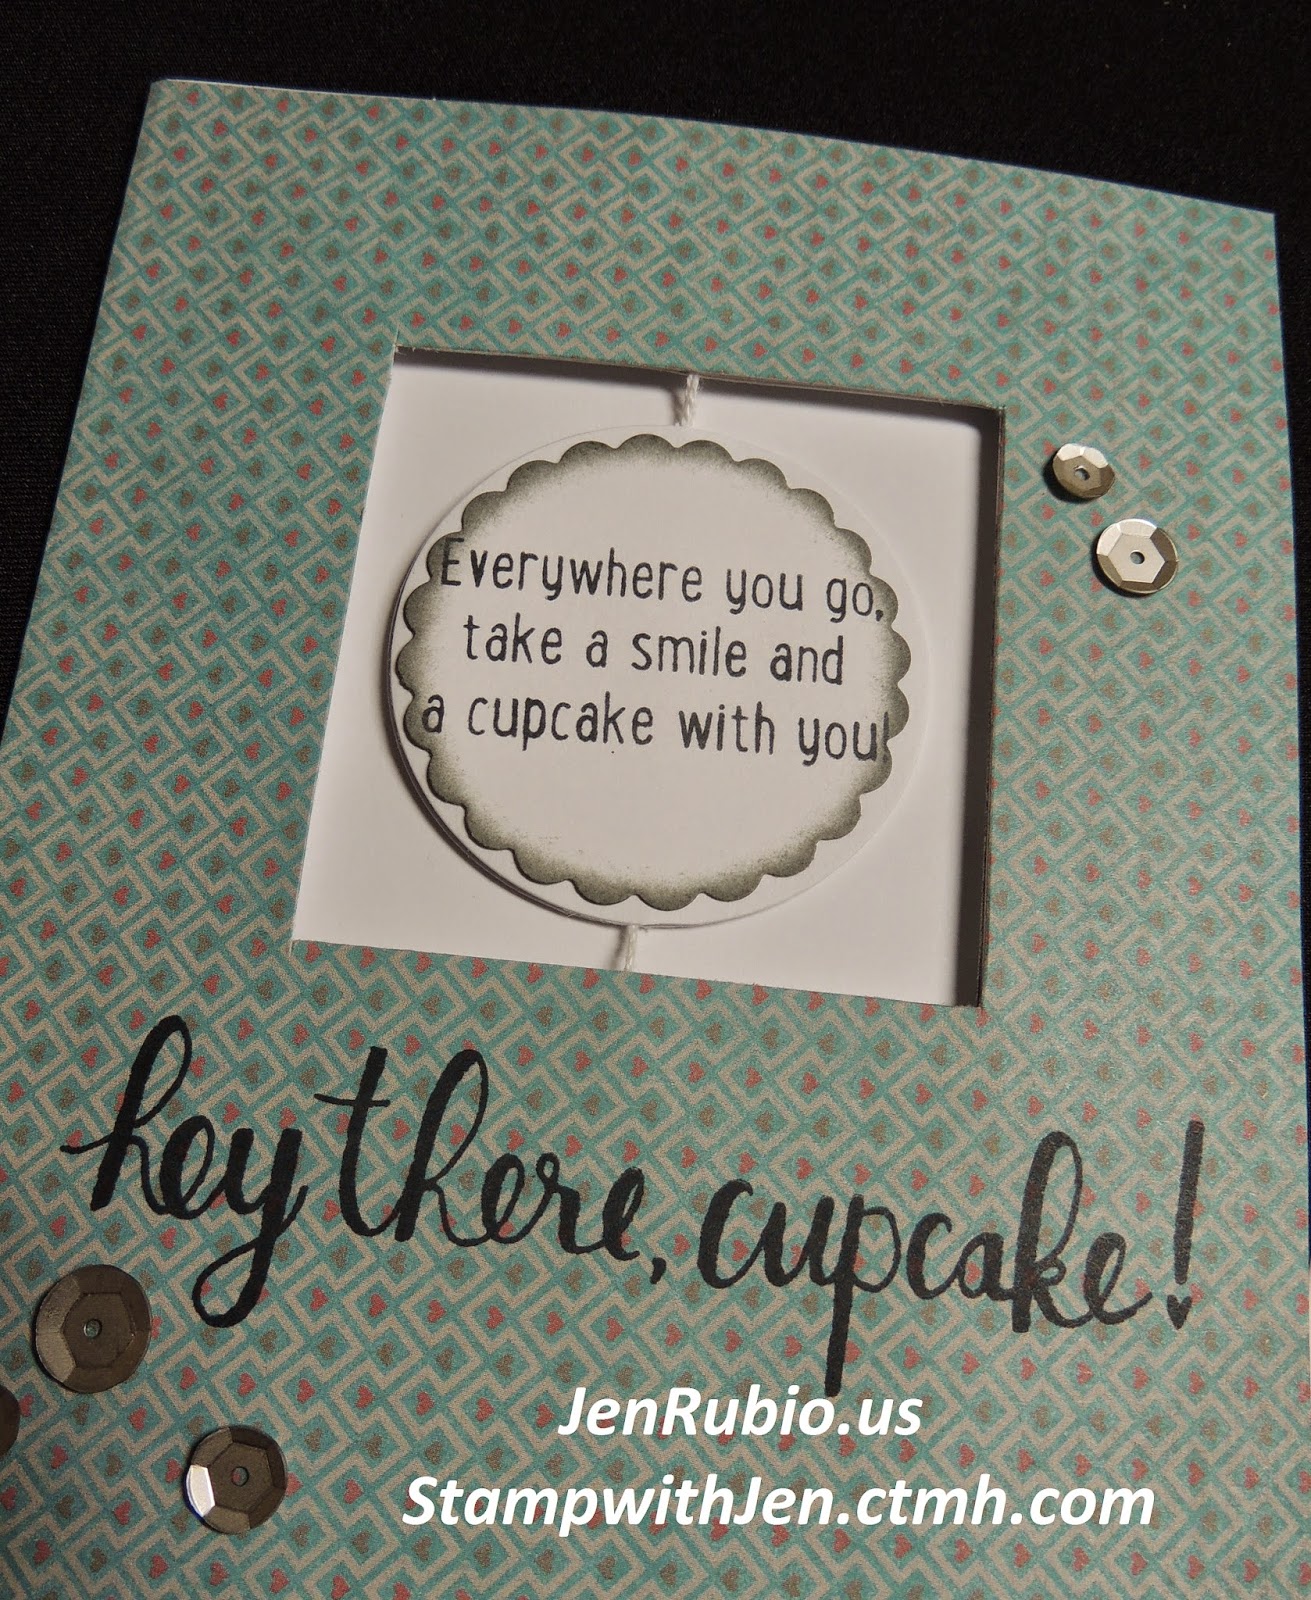 Everywhere you go,
take a smile and
a cupcake with you!
hey there, cupcake!
JenRubio.us
StampwithJen.ctmh.com